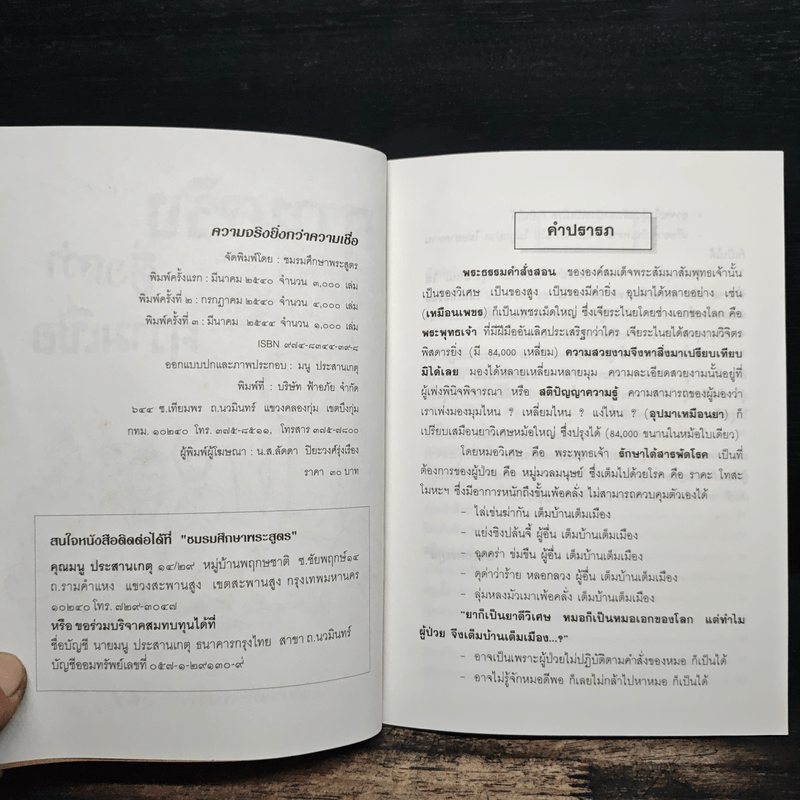 ความจริงยิ่งกว่าความเชื่อ
จัดพิมพ์โดย : ชมรมศึกษาพระสูตร
พิมพ์ครั้งแรก : มีนาคม ๒๕๔๐ จำนวน ๓,๐๐๐ เล่ม
พิมพ์ครั้งที่ ๒ : กรกฎาคม ๒๕๔๐ จำนวน ๔,๐๐๐ เล่ม
พิมพ์ครั้งที่ ๓ : มีนาคม ๒๕๔๔ จำนวน ๑,๐๐๐ เล่ม
ISBN ๙๗๔-๘๓๔๔-๓๙-๘
ออกแบบปกและภาพประกอบ : มนู ประสานเกตุ
พิมพ์ที่ : บริษัท ฟ้าอภัย จำกัด
๖๔๔ ซ.เทียมพร ถ.นวมินทร์ แขวงคลองกุ่ม เขตบึงกุ่ม
กทม. ๑๐๒๔๐ โทร. ๓๗๕-๘๕๑๑, โทรสาร ๓๗๕-๗๘๐๐
ผู้พิมพ์ผู้โฆษณา : น.ส.ลัดดา ปิยะวงศ์รุ่งเรือง
ราคา ๓๐ บาท
สนใจหนังสือติดต่อได้ที่ "ชมรมศึกษาพระสูตร"
คุณมนู ประสานเกตุ ๑๔/๒๙ หมู่บ้านพฤกษชาติ ซ.ชัยพฤกษ์๑๔
ถ.รามคำแหง แขวงสะพานสูง เขตสะพานสูง กรุงเทพมหานคร
๑๐๒๔๐ โทร. ๗๒๙-๓๐๔๗
หรือ ขอร่วมบริจาคสมทบทุนได้ที่
ชื่อบัญชี นายมนู ประสานเกตุ ธนาคารกรุงไทย สาขา ถ.นวมินทร์
บัญชีออมทรัพย์เลขที่ ๐๕๗-๑-๒๙๑๓๐-๙
คำปรารภ
พระธรรมคำสั่งสอน ขององค์สมเด็จพระสัมมาสัมพุทธเจ้านั้น
เป็นของวิเศษ เป็นของสูง เป็นของมีค่ายิ่ง อุปมาได้หลายอย่าง เช่น
(เหมือนเพชร) ก็เป็นเพชรเม็ดใหญ่ ซึ่งเจียระไนยโดยช่างเอกของโลก คือ
พระพุทธเจ้า ที่มีฝีมืออันเลิศประเสริฐกว่าใคร เจียระไนยได้สวยงามวิจิตร
พิสดารยิ่ง (มี 84,000 เหลี่ยม) ความสวยงามจึงหาสิ่งมาเปรียบเทียบ
มิได้เลย มองได้หลายเหลี่ยมหลายมุม ความละเอียดสวยงามนั้นอยู่ที่
ผู้เพ่งพินิจพิจารณา หรือ สติปัญญาความรู้ ความสามารถของผู้มองว่า
เราเพ่งมองมุมไหน ? เหลี่ยมไหน ? แง่ไหน ? (อุปมาเหมือนยา) ก็
เปรียบเสมือนยาวิเศษหม้อใหญ่ ซึ่งปรุงได้ (84,000 ขนานในหม้อใบเดียว)
โดยหมอวิเศษ คือ พระพุทธเจ้า รักษาได้สารพัดโรค เป็นที่
ต้องการของผู้ป่วย คือ หมู่มวลมนุษย์ ซึ่งเต็มไปด้วยโรค คือ ราคะ โทสะ
โมหะฯ ซึ่งมีอาการหนักถึงขั้นเพ้อคลั่ง ไม่สามารถควบคุมตัวเองได้
- ไล่เข่นฆ่ากัน เต็มบ้านเต็มเมือง
- แย่งชิงปล้นจี้ ผู้อื่น เต็มบ้านเต็มเมือง
- ฉุดคร่า ข่มขืน ผู้อื่น เต็มบ้านเต็มเมือง
- ดุด่าว่าร้าย หลอกลวง ผู้อื่น เต็มบ้านเต็มเมือง
- ลุ่มหลงมัวเมาเพ้อคลั่ง เต็มบ้านเต็มเมือง
"ยาก็เป็นยาดีวิเศษ หมอก็เป็นหมอเอกของโลก แต่ทำไม
ผู้ป่วย จึงเต็มบ้านเต็มเมือง...?"
- อาจเป็นเพราะผู้ป่วยไม่ปฏิบัติตามคำสั่งของหมอ ก็เป็นได้
- อาจไม่รู้จักหมอดีพอ ก็เลยไม่กล้าไปหาหมอ ก็เป็นได้